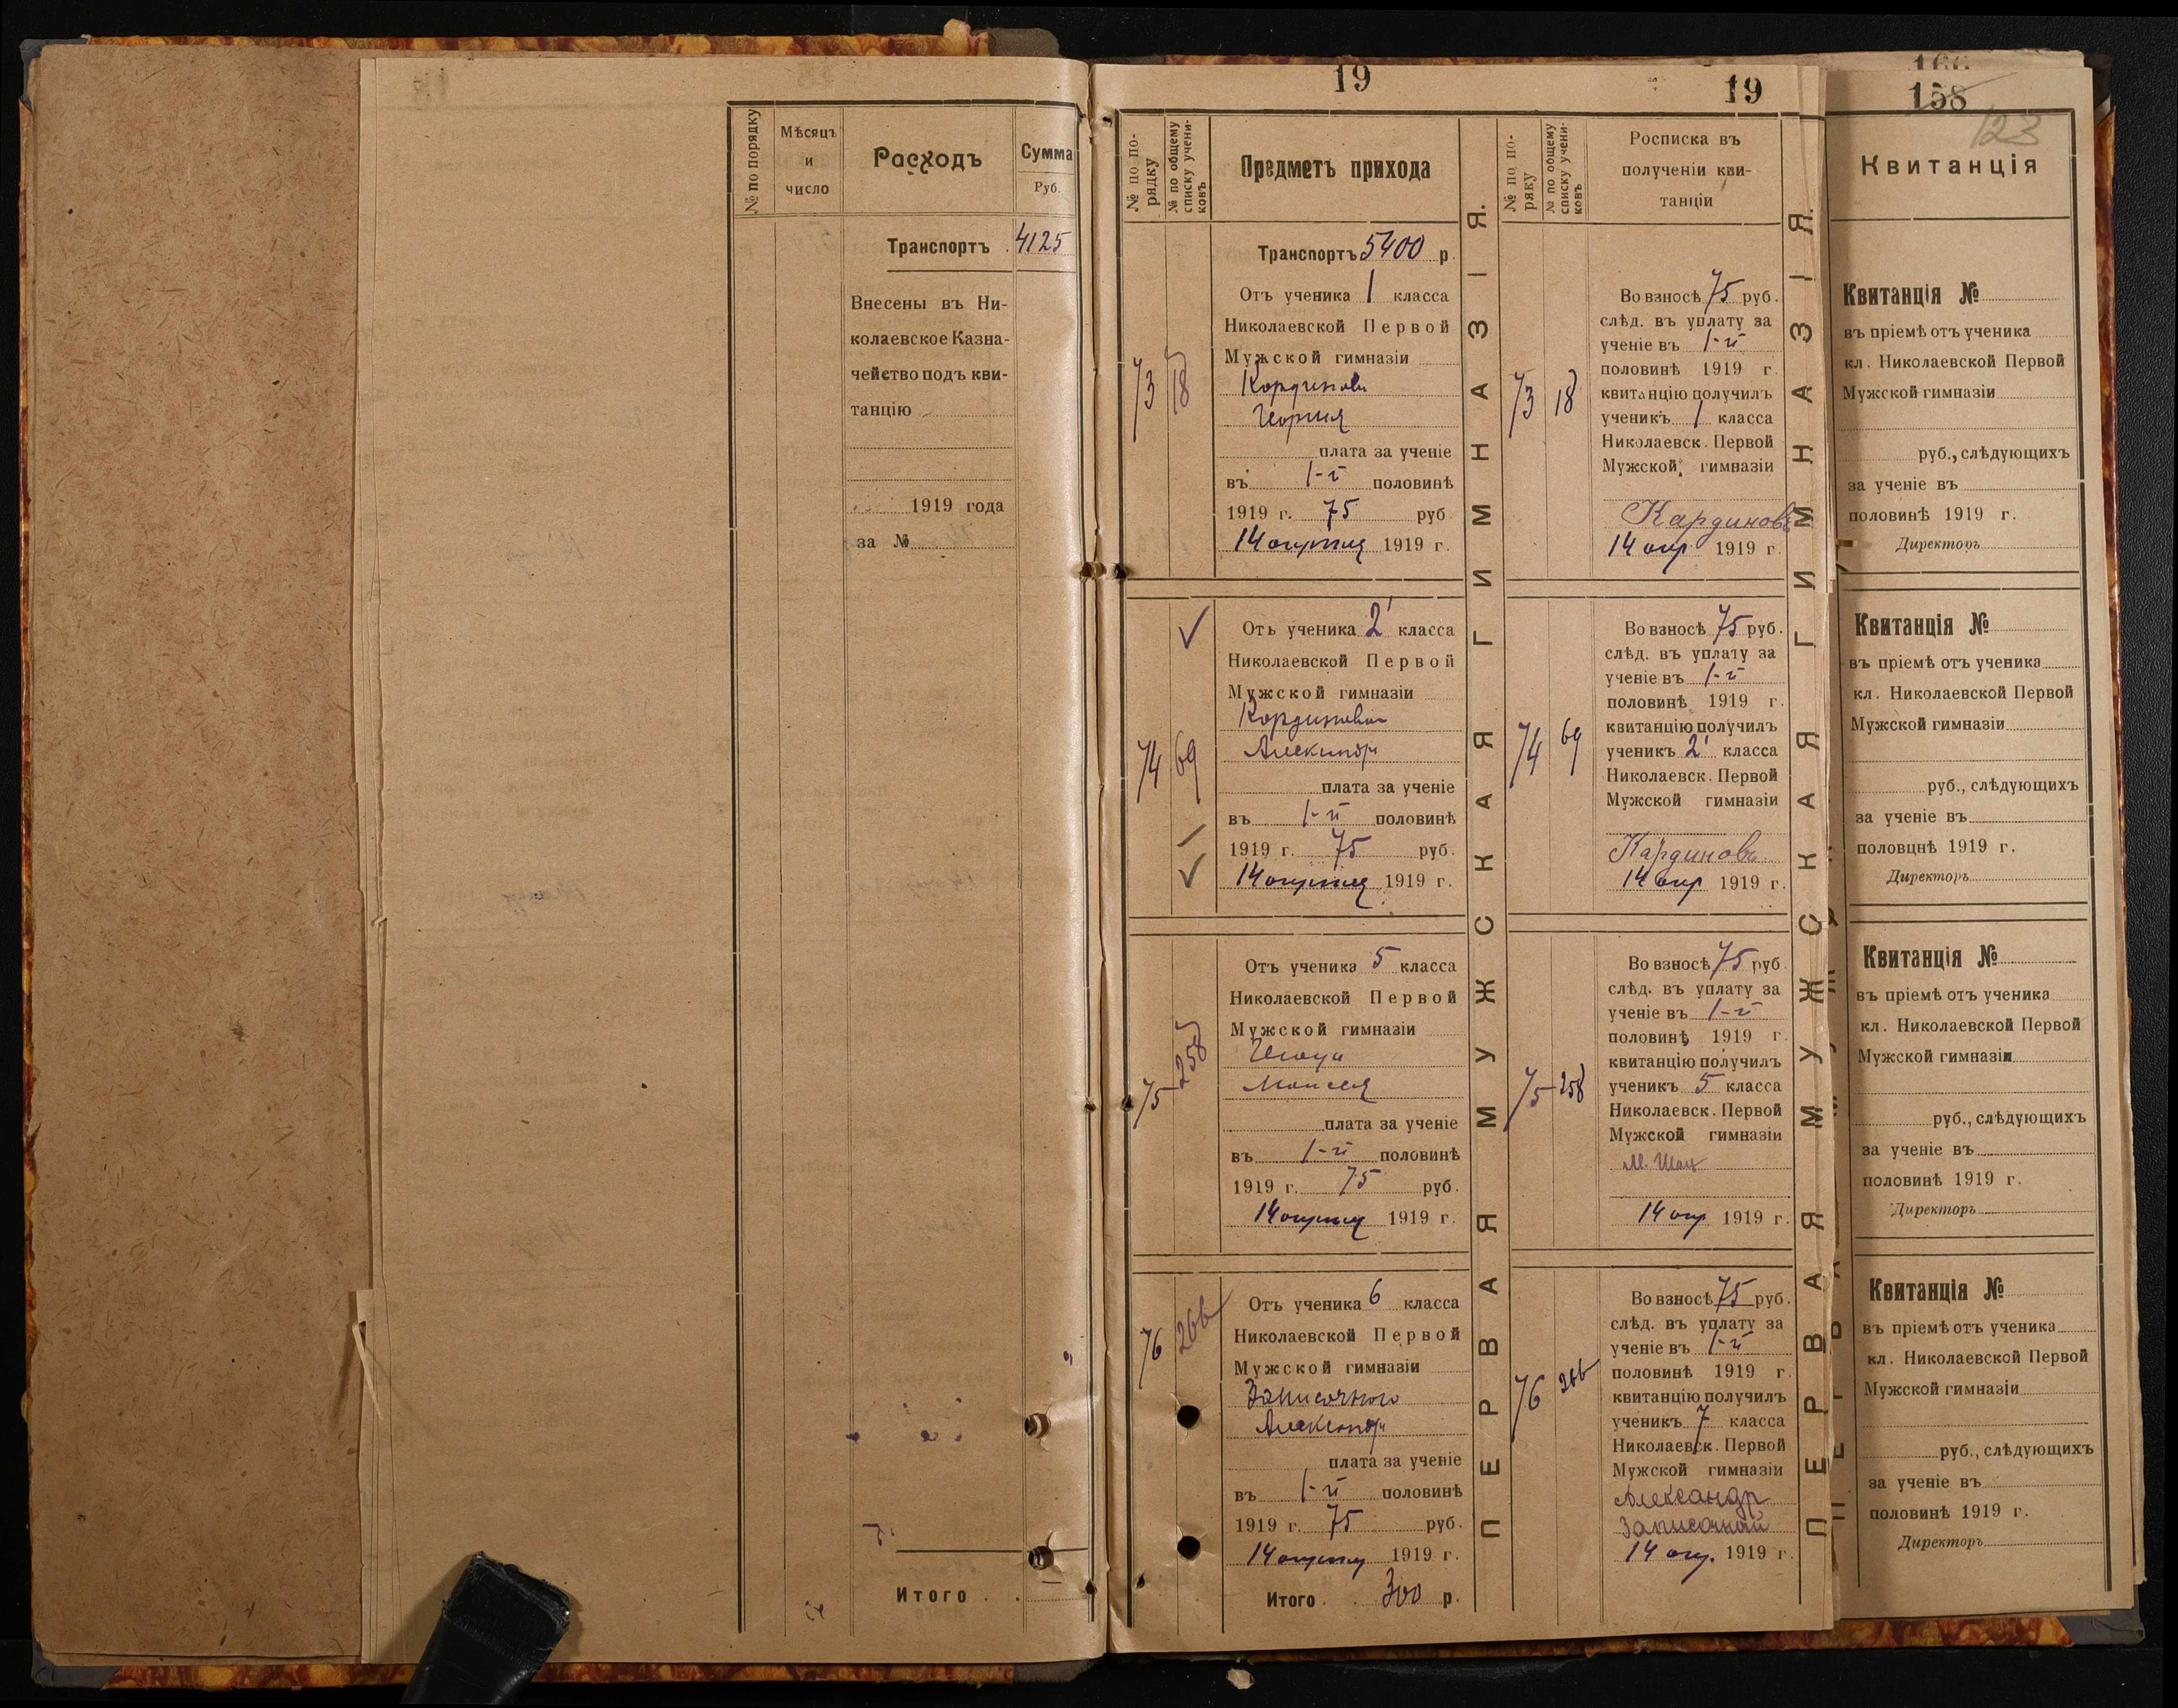 № по порядку
Мѣсяцъ
и
число
Расходъ
Сумма
Руб.
Транспортъ . 4125
Внесены въ Ни-
колаевское Казна-
чейство подъ кви-
танцію
1919 года
за №
Итого . .
19
№ по по-
рядку
№ по общему
списку учени-
ковъ
Предметъ прихода
Транспортъ 5400 р.
73
18
Отъ ученика 1 класса
Николаевской Первой
Мужской гимназіи
Кординова
Георгия
плата за ученіе
въ 1-й половинѣ
1919 г. 75 руб
14 апреля 1919 г.
74
69
Отъ ученика 2' класса
Николаевской Первой
Мужской гимназіи
Кординова
Александр
плата за ученіе
въ 1-й половинѣ
1919 г. 75 руб.
14 апреля 1919 г.
75
258
Отъ ученика 5 класса
Николаевской Первой
Мужской гимназіи
Моисея
плата за ученіе
въ 1-й половинѣ
1919 г. 75 руб.
14 апреля 1919 г.
76
266
Отъ ученика 6 класса
Николаевской Первой
Мужской гимназіи
Записочного
Александр
плата за ученіе
въ 1-й половинѣ
1919 г. 75 руб.
14 апреля 1919 г.
Итого . . 300 р.
ПЕРВАЯ МУЖСКАЯ ГИМНАЗІЯ.
19
№ по по-
ряку
№ по общему
списку учени-
ковъ
Росписка въ
полученіи кви-
танціи
73
18
Во взносѣ 75 руб.
слѣд. въ уплату за
ученіе въ 1-й
половинѣ 1919 г.
квитанцію получилъ
ученикъ 1 класса
Николаевск. Первой
Мужской гимназіи
Кардиновъ
14 апр 1919 г.
74
69
Во взносѣ 75 руб.
слѣд. въ уплату за
ученіе въ 1-й
половинѣ 1919 г.
квитанцію получилъ
ученикъ 2' класса
Николаевск. Первой
Мужской гимназіи
Кардиновъ
14 апр 1919 г.
75
258
Во взносѣ 75 руб
слѣд. въ уплату за
ученіе въ 1-й
половинѣ 1919 г.
квитанцію получилъ
ученикъ 5 класса
Николаевск. Первой
Мужской гимназіи
М. Шац
14 апр 1919 г.
76
266
Во взносѣ 75 руб.
слѣд. въ уплату за
ученіе въ 1-й
половинѣ 1919 г.
квитанцію получилъ
ученикъ 7 класса
Николаевск. Первой
Мужской гимназіи
Александр
Записочный
14 апр. 1919 г.
ПЕРВАЯ МУЖСКАЯ ГИМНАЗІЯ.
166
158
123
Квитанція
Квитанція №
въ пріемѣ отъ ученика
кл. Николаевской Первой
Мужской гимназіи
руб., слѣдующихъ
за ученіе въ
половинѣ 1919 г.
Директоръ
Квитанція №
въ пріемѣ отъ ученика
кл. Николаевской Первой
Мужской гимназіи
руб., слѣдующихъ
за ученіе въ
половцнѣ 1919 г.
Директоръ
Квитанція №
въ пріемѣ отъ ученика
кл. Николаевской Первой
Мужской гимназіи
руб., слѣдующихъ
за ученіе въ
половинѣ 1919 г.
Директоръ
Квитанція №
въ пріемѣ отъ ученика
кл. Николаевской Первой
Мужской гимназіи
руб., слѣдующихъ
за ученіе въ
половинѣ 1919 г.
Директоръ